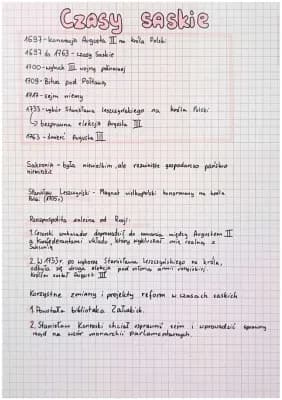 Czasy saskie
1697-koronacja Augusta II na króla Polski
1697 do 1763 - czasy Saskie
1700-wybuch III wojny północnej
1709-Bitwa pod Połtawą
1717-sejm niemy
1733-wybór Stanisława Leszczyńskiego na króla Polski
↳ bezprawna elekcja Augusta III
1763-śmierć Augusta III
Saksonia - była niewielkim, ale rozwinięte gospodarczo państwo
niemieckie
Stanisław Leszczyński - Magnat wielkopolski koronowany na króla
Polski (1705r.)
Rzeczpospolita zależna od Rosji:
1. Carski ambasador doprowadził do zawarcia między Augustem II
a konfederantami układu, który wykluczał unię realną z
Saksonią
2. W 1733r. po wyborze Stanisława Leszczyńskiego na króla,
odbyła się druga elekcja pod osłoną armii rosyjskiej.
Królem został August III
Korzystne zmiany i projekty reform w czasach saskich
1. Powstała biblioteka Załuskich.
2. Stanisław Konarski chciał usprawnić sejm i wprowadzić sprawny
rząd na wzór monarchii parlamentarnych.